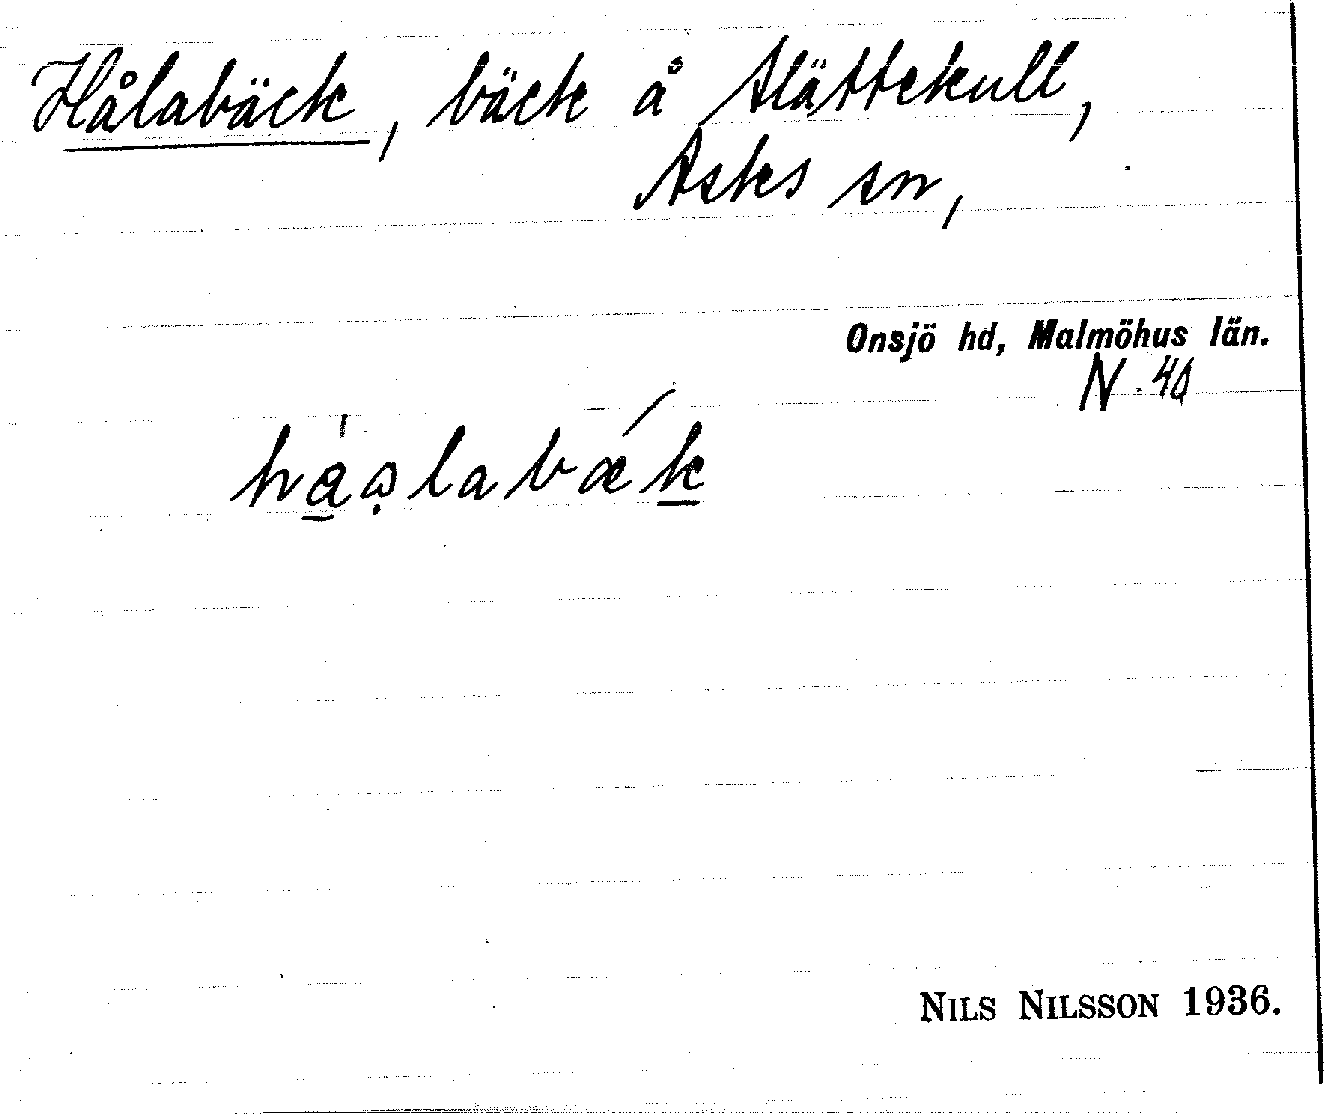 Hålabäck, bäck å Slättekull,
Asks sn,
Onsjö hd, Malmöhus län.
N. 40
NILS NILSSON 1936.